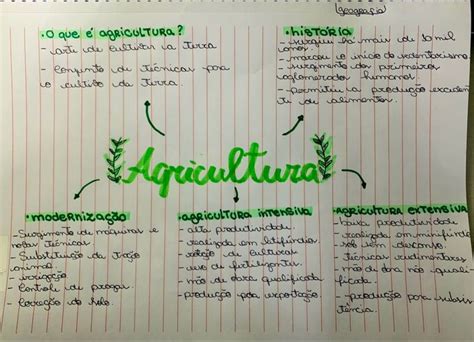 geografia
• O que é AGRICULTURA?
- arte de cultivar a terra
- Conjunto de técnicas para
o cultivo da terra.
• HISTÓRIA
- surgiu há mais de 10 mil
anos.
- marcou o início do sedentarismo
- surgimento dos primeiros
aglomerados humanos.
- permitiu a produção exceden
te de alimentos.
Agricultura
• MODERNIZAÇÃO
- Surgimento de máquinas e
novas técnicas
- Substituição da tração
animal
- irrigação
- Controle de pragas.
- Correção do solo.
• AGRICULTURA INTENSIVA
- alta produtividade.
- realizada em latifúndio
- rotação de culturas
- uso de fertilizantes.
- mão de obra qualificada
- produção para exportação.
• AGRICULTURA EXTENSIVA
- baixa produtividade.
- realizada em minifúndio
- solo sem descanso.
- técnicas rudimentares
- mão de obra não quali
ficada.
- produção para subsis
tência.